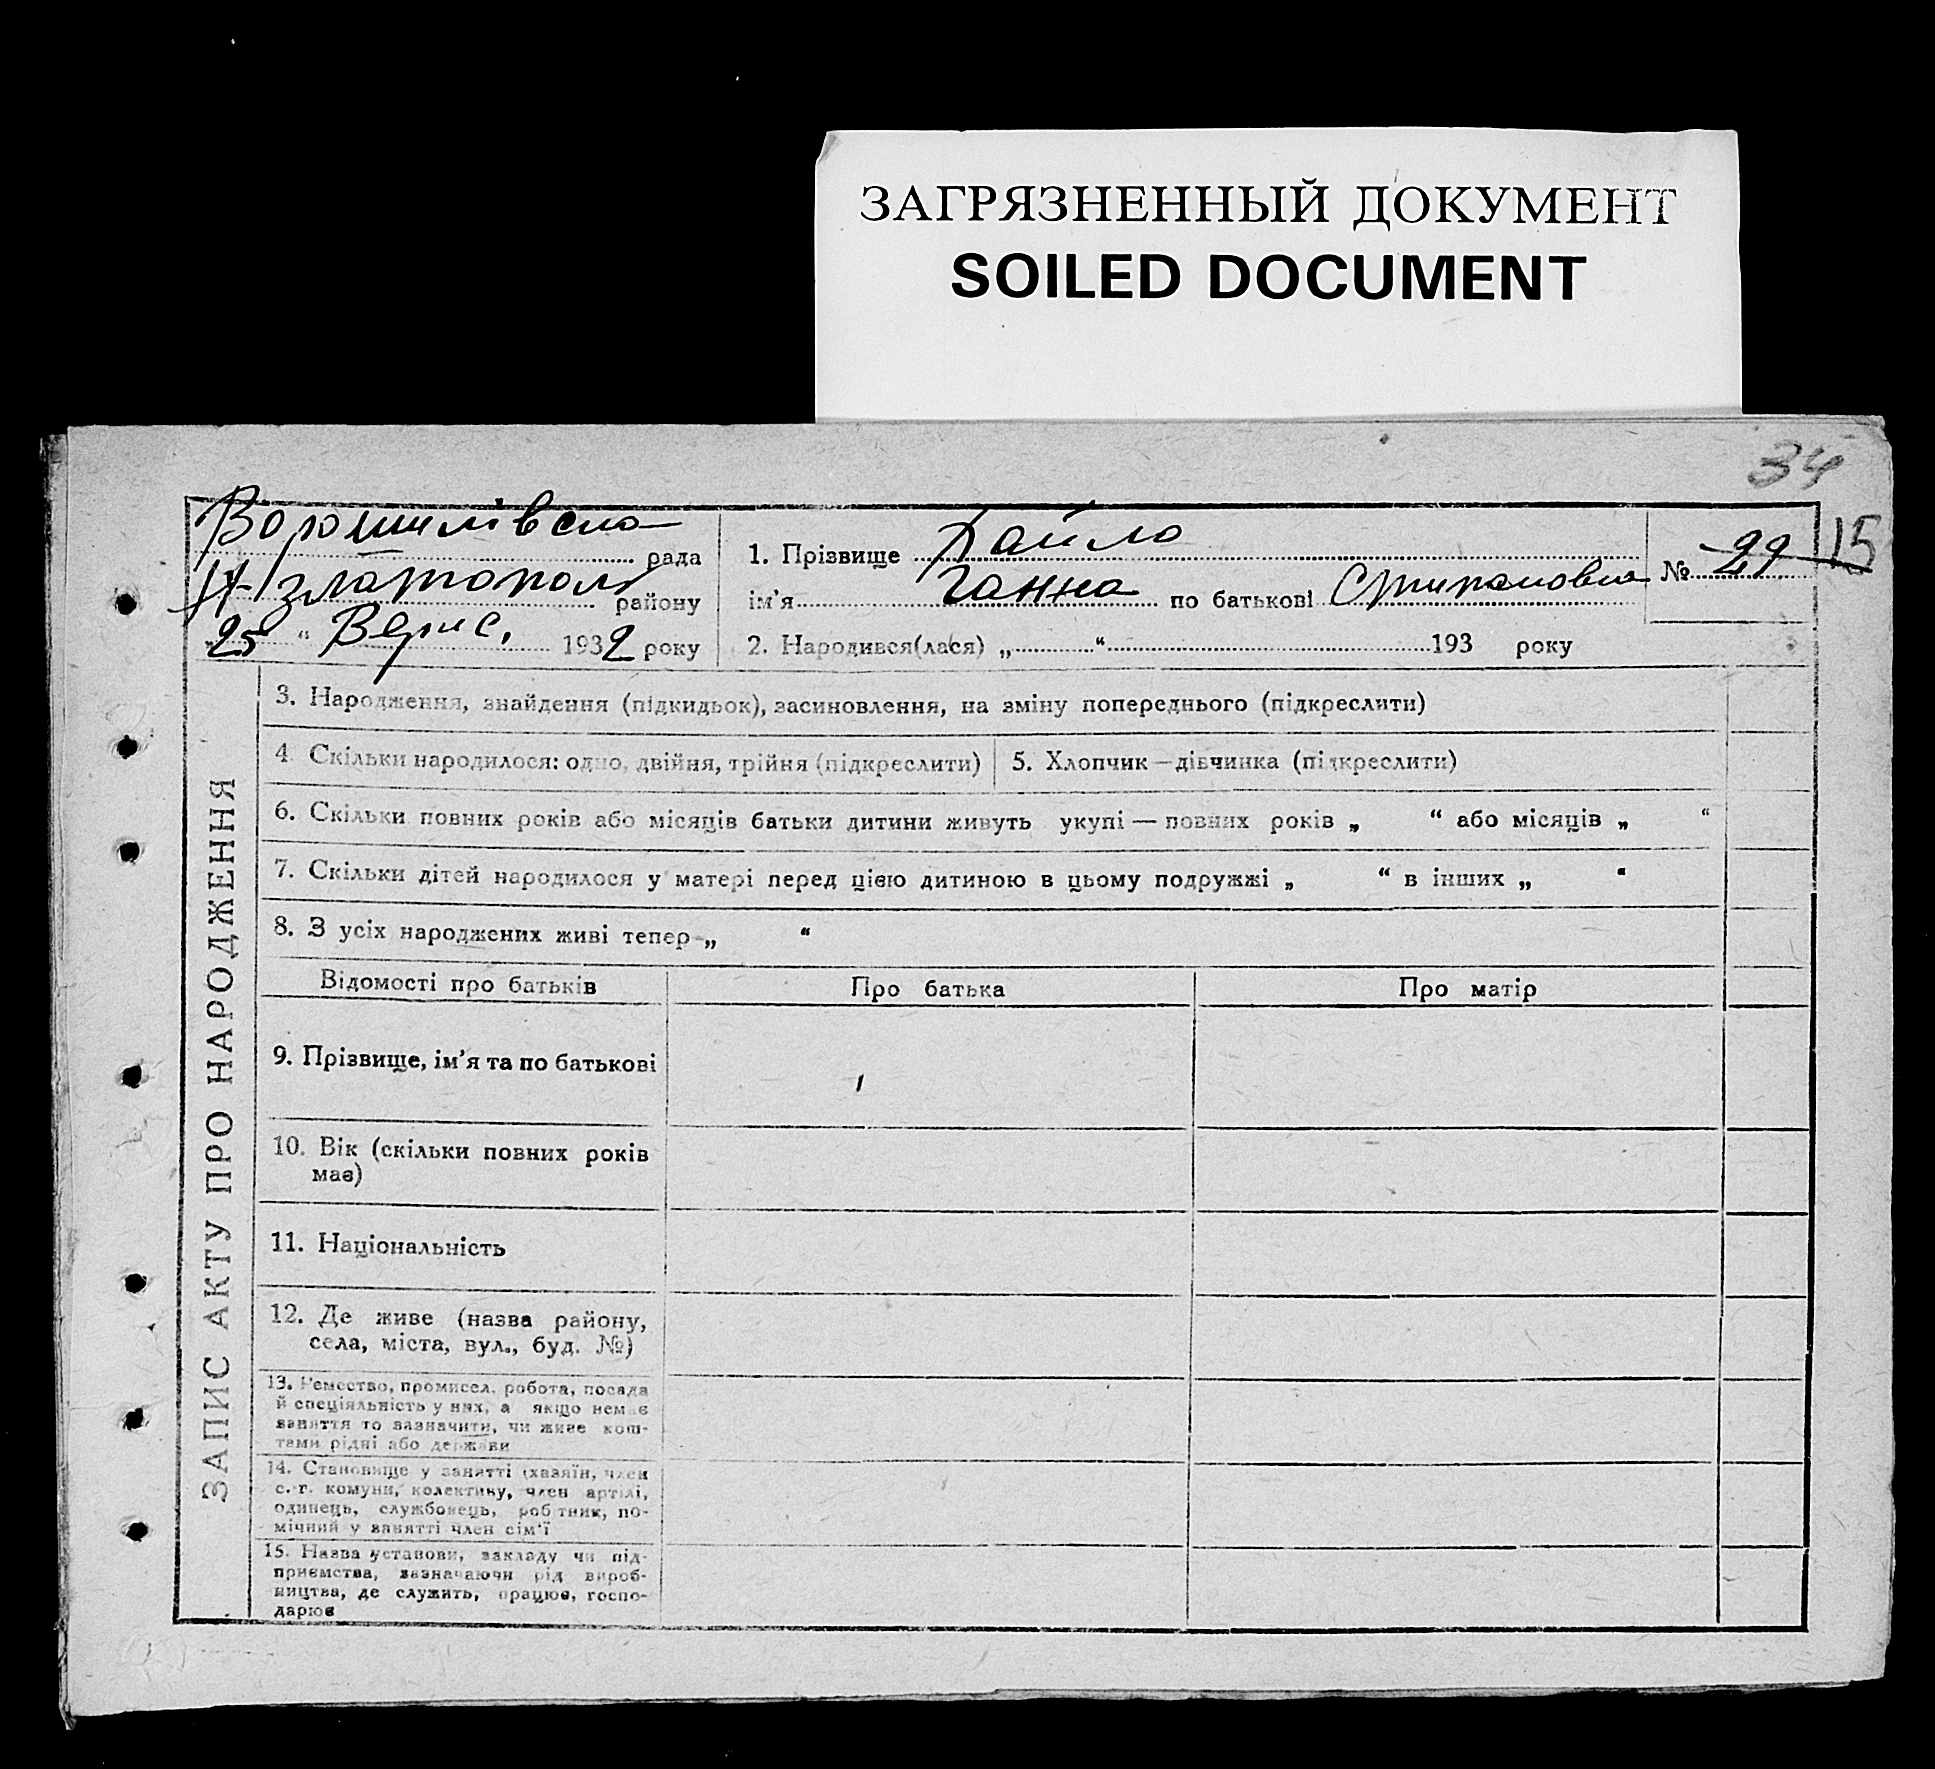 ЗАГРЯЗНЕННЫЙ ДОКУМЕНТ
SOILED DOCUMENT
34
Ворошилівська рада
Н-златополь району
"25" Верес. 1932 року
1. Прізвище
ім'я Ганна по батькові Степановна
№ 29 15
2. Народився(лася) „ “ 193 року
ЗАПИС АКТУ ПРО НАРОДЖЕННЯ
3. Народження, знайдення (підкидьок), засиновлення, на зміну попереднього (підкреслити)
4. Скільки народилося: одно, двійня, трійня (підкреслити)
5. Хлопчик — дівчинка (підкреслити)
6. Скільки повних років або місяців батьки дитини живуть укупі — повних років „ “ або місяців „ “
7. Скільки дітей народилося у матері перед цією дитиною в цьому подружжі „ “ в інших „ “
8. З усіх народжених живі тепер „ “
Відомості про батьків
Про батька
Про матір
9. Прізвище, ім'я та по батькові
10. Вік (скільки повних років
має)
11. Національність
12. Де живе (назва району,
села, міста, вул., буд. №)
13. Ремество, промисел, робота, посада
й спеціяльність у них, а якщо немає
заняття то зазначити, чи живе кош-
тами рідні або держави
14. Становище у занятті (хазяїн, член
с.-г. комуни, колективу, член артілі,
одинець, службовець, робітник, по-
мічний у занятті член сім'ї
15. Назва установи, закладу чи під-
приємства, зазначаючи рід вироб-
ництва, де служить, працює, госпо-
дарює